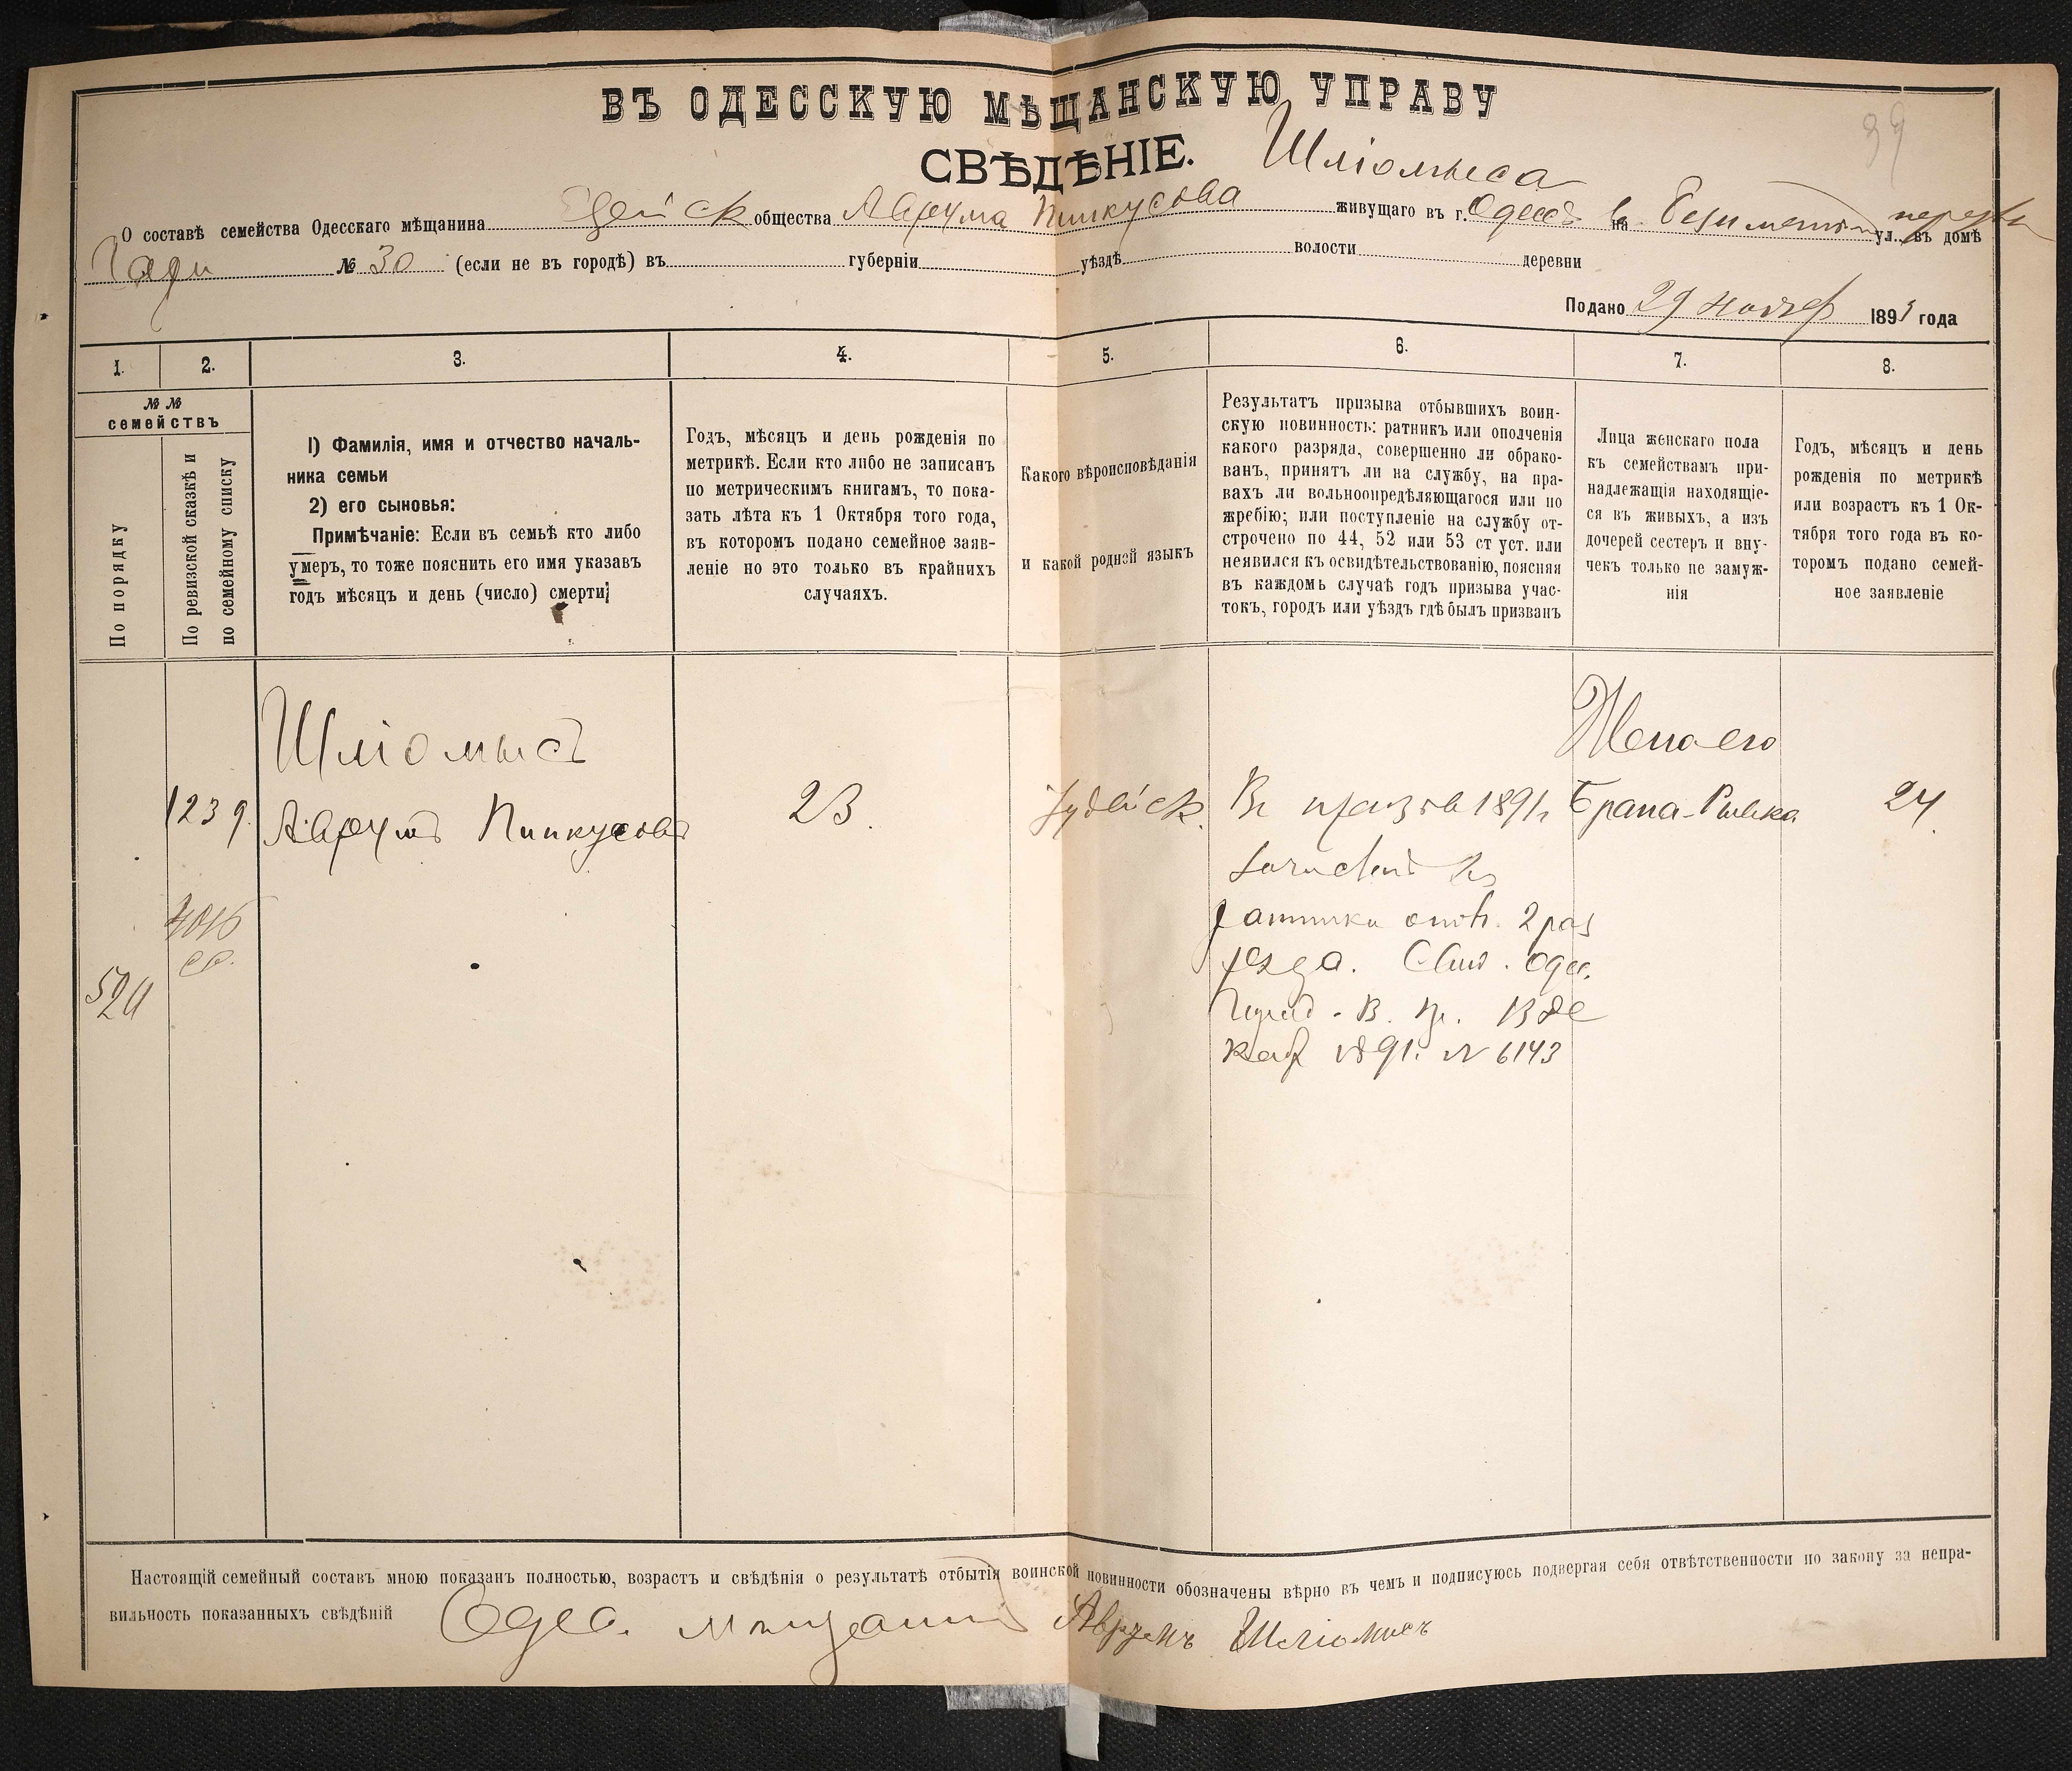 39
ВЪ ОДЕССКУЮ МѢЩАНСКУЮ УПРАВУ
СВѢДѢНІЕ.
Шліомыса
О составѣ семейства Одесскаго мѣщанина общества Аврума Пинкусова живущаго въ г. Одессѣ на ул. въ домѣ
№ 30 (если не въ городѣ) въ губерніи уѣздѣ волости деревни
Подано 29 ноябр 1893 года
1. 2. 3. 4. 5. 6. 7. 8.
№ №
семействъ
По порядку
По ревизской сказкѣ и
по семейному списку
1) Фамилія, имя и отчество началь-
ника семьи
2) его сыновья:
Примѣчаніе: Если въ семьѣ кто либо
умеръ, то тоже пояснить его имя указавъ
годъ мѣсяцъ и день (число) смерти;
Годъ, мѣсяцъ и день рожденія по
метрикѣ. Если кто либо не записанъ
по метрическимъ книгамъ, то пока-
зать лѣта къ 1 Октября того года,
въ которомъ подано семейное заяв-
леніе но это только въ крайнихъ
случаяхъ.
Какого вѣроисповѣданія
и какой родной языкъ
Результатъ призыва отбывшихъ воин-
скую повинность: ратникъ или ополченія
какого разряда, совершенно ли обрако-
ванъ, принятъ ли на службу, на пра-
вахъ ли вольноопредѣляющагося или по
жребію; или поступленіе на службу от-
строчено по 44, 52 или 53 ст уст. или
неявился къ освидѣтельствованію, поясняя
въ каждомъ случаѣ годъ призыва учас-
токъ, городъ или уѣздъ гдѣ былъ призванъ
Лица женскаго пола
къ семействамъ при-
надлежащія находящіе-
ся въ живыхъ, а изъ
дочерей сестеръ и вну-
чекъ только не замуж-
нія
Годъ, мѣсяцъ и день
рожденія по метрикѣ
или возрастъ къ 1 Ок-
тября того года въ ко-
торомъ подано семей-
ное заявленіе
Шліомысъ
1239. Аврумъ Пинкусовъ
23.
Іудейск.
Въ призывъ 1891г
ратники опол. 2 раз
ряда. Свид. Одес.
Город. В. Пр. 13 Де
каб 1891. № 6143
Жена его
Брана-Ривка
24.
524
Настоящій семейный составъ мною показанъ полностью, возрастъ и свѣдѣнія о результатѣ отбытія воинской повинности обозначены вѣрно въ чемъ и подписуюсь подвергая себя отвѣтственности по закону за непра-
вильность показанныхъ свѣдѣній Одес. мѣщанинъ Аврумъ Шліомисъ